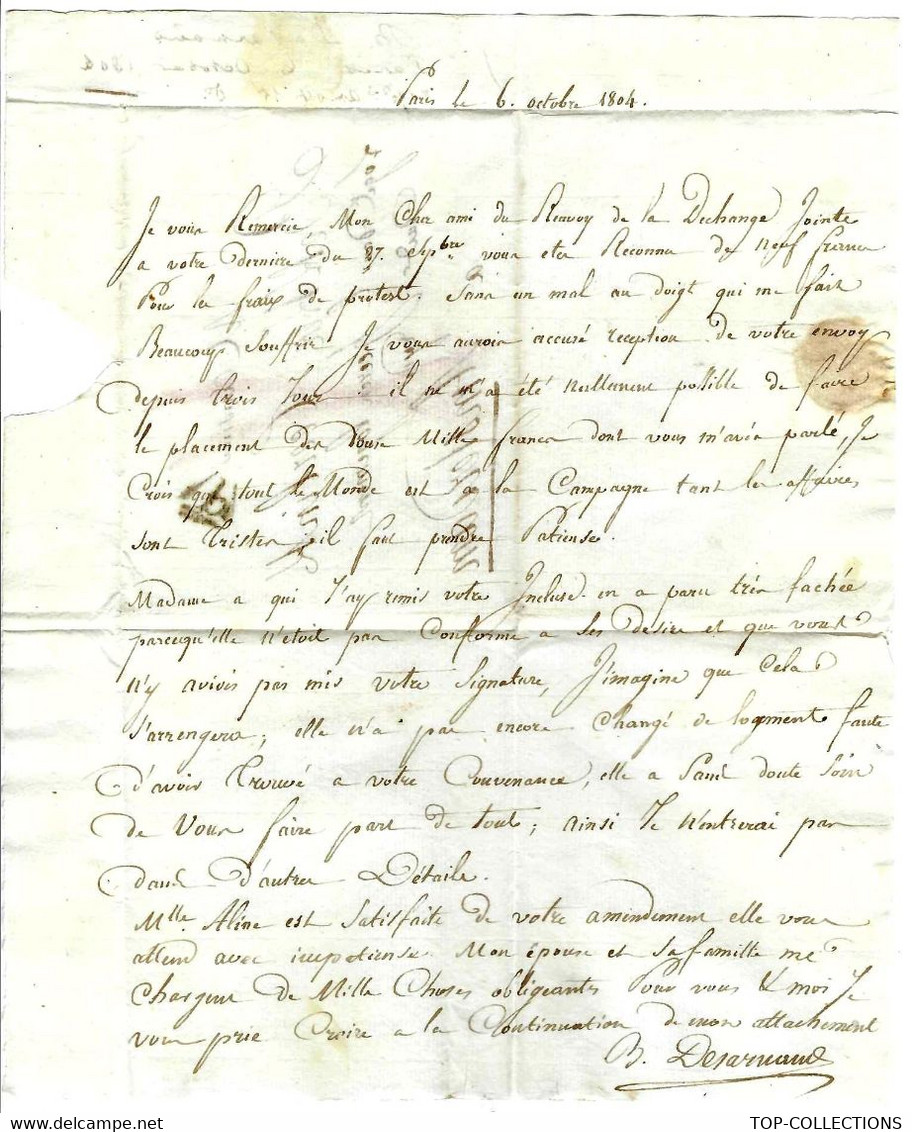 Paris le 6. octobre 1804.
Je vous Remercie, Mon Cher ami du Renvoy de la Dechange Jointe
a votre derniere du 27. Sepbre. vous etes Reconnu de Neuf francs
Pour les fraix de protest. Sans un mal au doigt qui me fait
Beaucoup Souffrir Je vous aurois accusé reception de votre envoy
depuis trois Jours. il ne m'a été Nullement possible de faire
le placement des douse Mille francs dont vous m'avés parlé, Je
Crois que tout le Monde est a la Campagne tant les affaires
sont tristes, il faut prendre Patiense.
Madame a qui J'ay remis votre Incluse. en a paru très fachée
parcequ'elle n'étoit pas Conforme a Ses desirs et que vous
n'y aviés pas mis votre Signature, J'imagine que Cela
s'arrengera; elle n'a pas encore Changé de logment faute
d'avoir trouvé a votre Convenance, elle a Sans doute Soin
de Vous faire part de tout; ainsi Je N'entrerai pas
dans d'autres Détails.
Mlle. Aline est Satisfaite de votre amendement elle vous
attend avec impatiense. Mon épouse et Sa famille me
Chargent de Mille Choses obligeantes Pour vous & moi Je
vous prie Croire a la Continuation de mon attachement
B. Desarnaud
TOP-COLLECTIONS